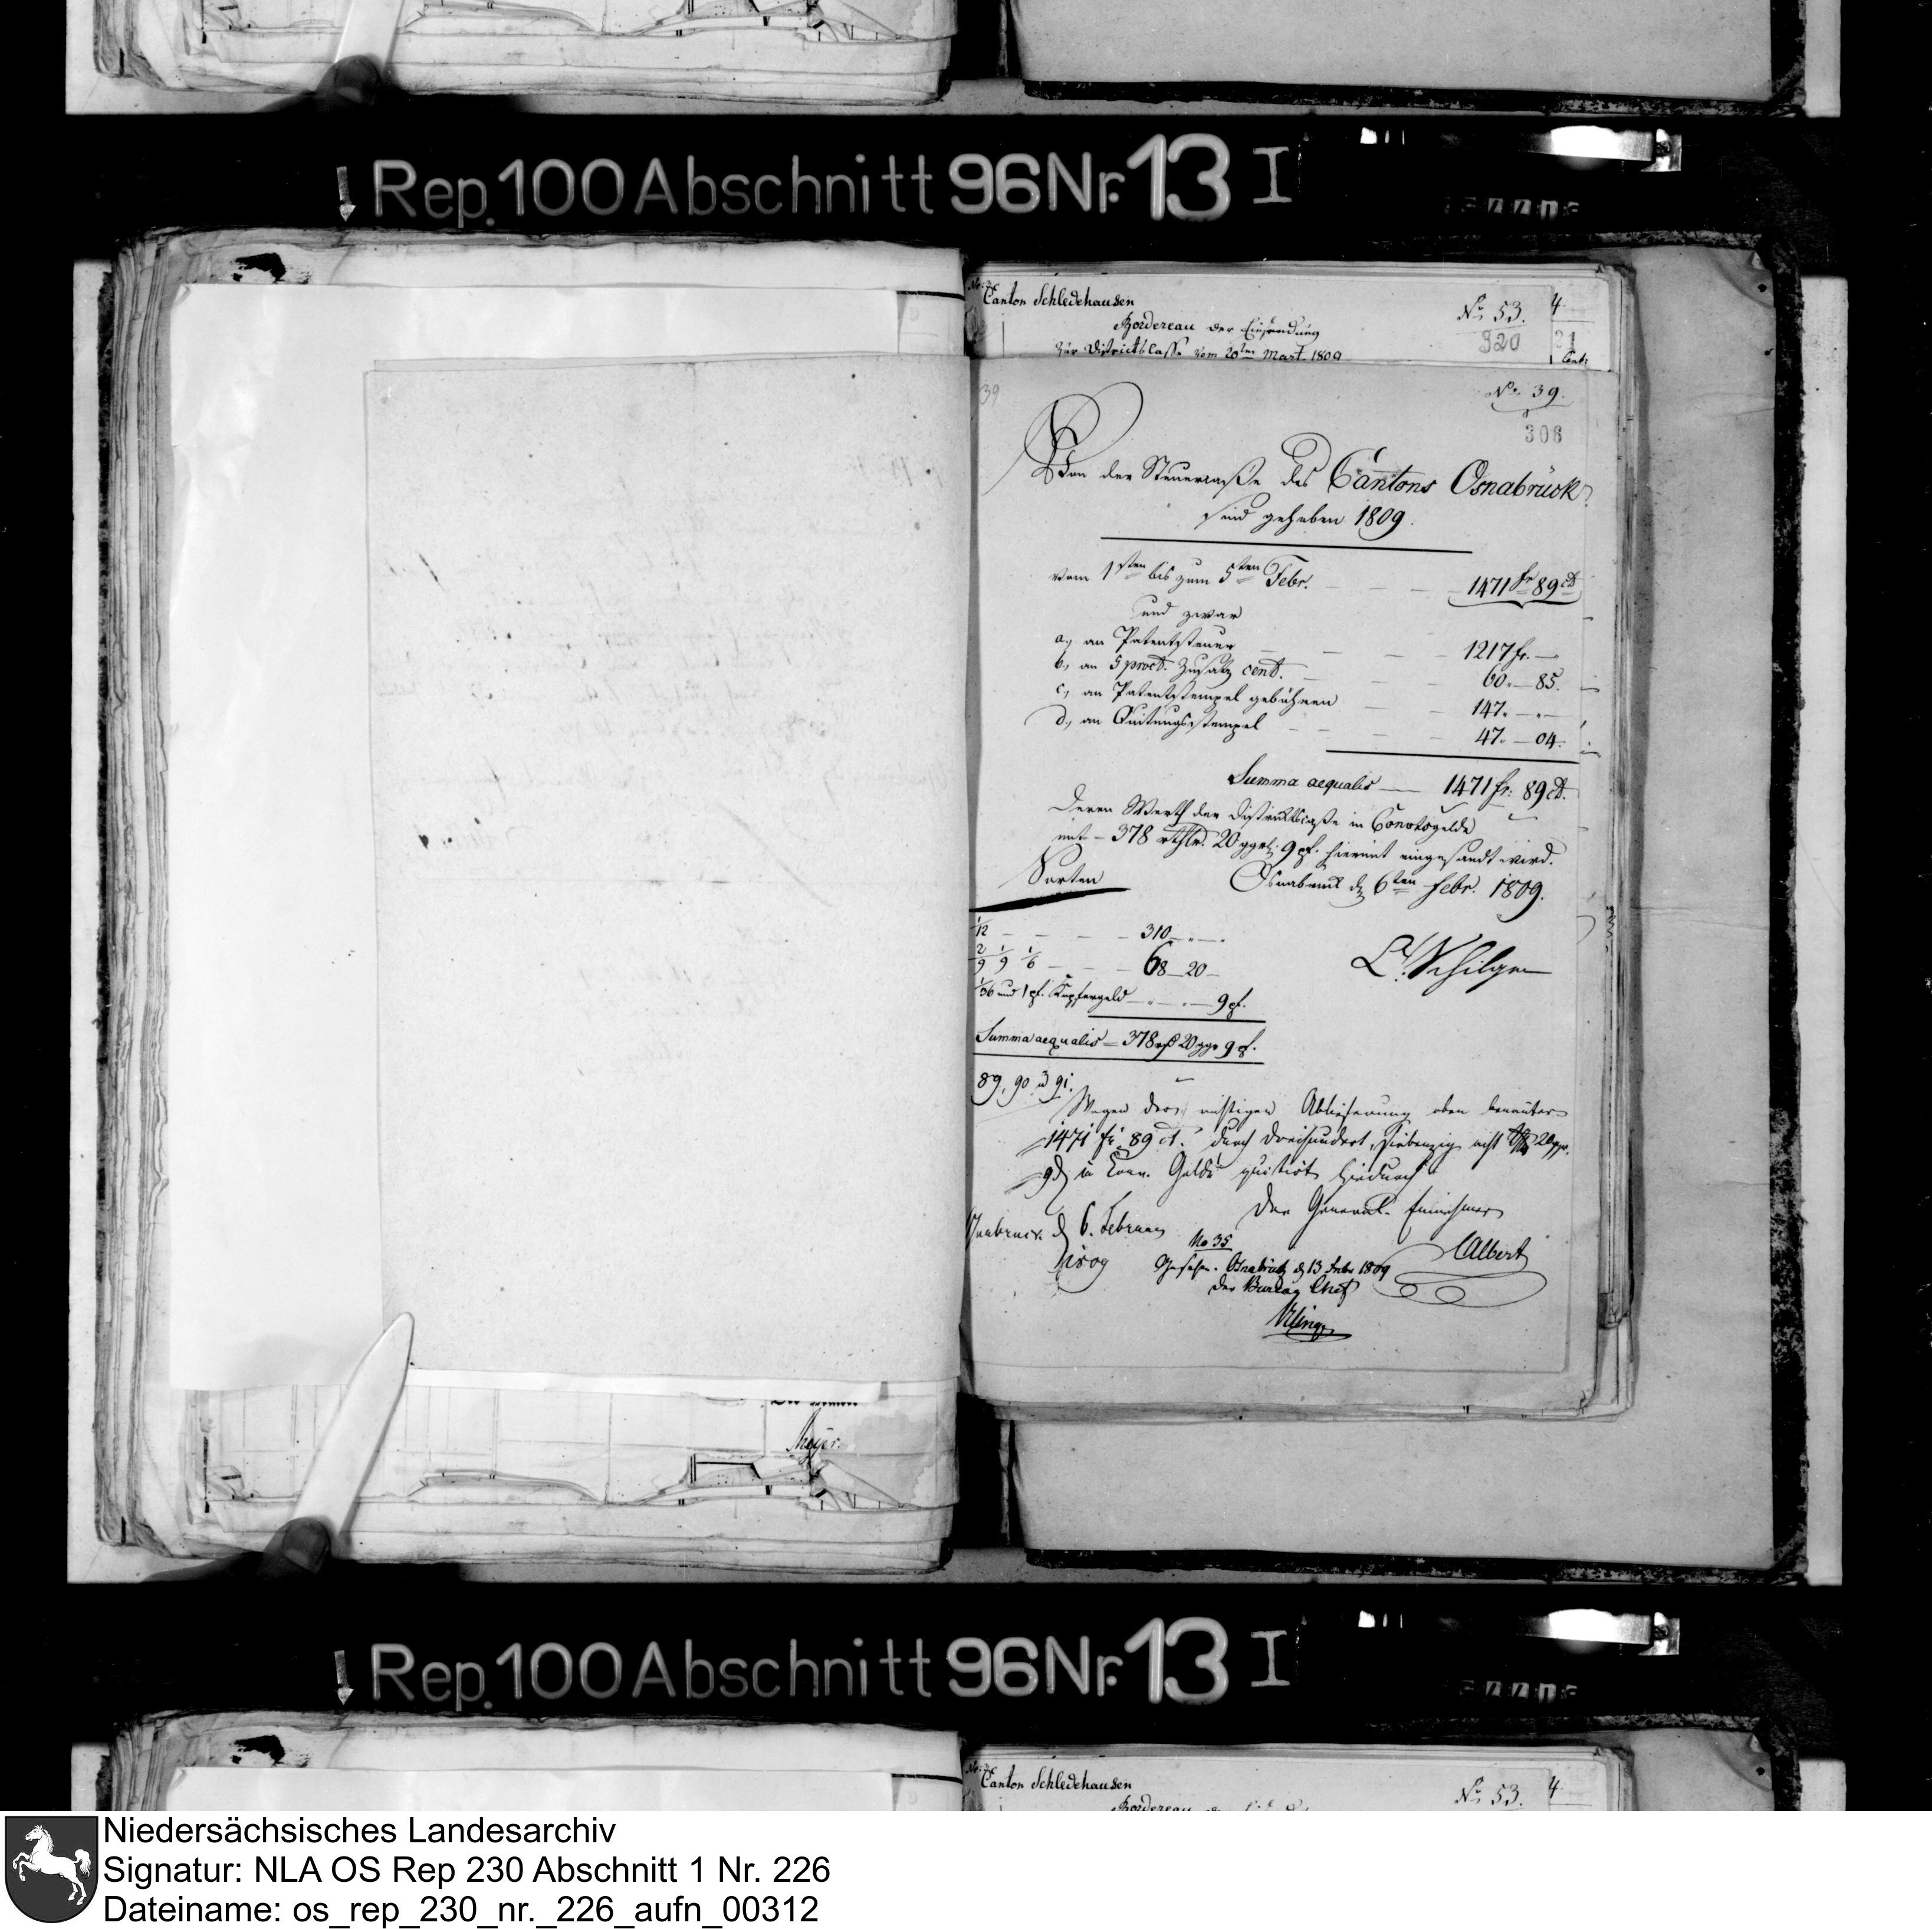 Rep. 100 Abschnitt 96 Nr. 13 I
Canton Schledehausen
Bordereau der Einsendung
zur Districts Casse vom 20ten Mart. 1809
No. 53.
320
4.
21
Cents
39
No. 39.
308
Von der Steuercasse des Cantons Osnabrück
sind gehoben 1809.
vom 1sten bis zum 5ten Febr. — — — 1471 fr 89 ct
und zwar
a, an Patentsteuer — — — 1217 fr. —
b, an 5 proct. Zusatz cent. — — — 60. — 85.
c, an Patentstempel gebühren — — 147. — " —
d, an Quitungsstempel — — — — 47. — 04.
Summa aequalis — 1471 fr. 89 ct.
Deren Werth der Districtscasse in Convtsgelde
mit – 378 rthlr. 20 ggl. 9 pf. hiermit eingesandt wird.
Sorten
Osnabruck d 6ten Febr. 1809.
1/12 — — — — 310 — " —
2/9 1/9 1/6 — — — 68 — 20 —
1/36 und 1 pf. Kupfergeld — " — " — 9 pf.
CSchilgen
Summa aequalis = 378 rt 20 ggr 9 pf.
89, 90 u 91.
Wegen der richtigen Ablieferung oben benanter
1471 fr. 89 ct. durch dreihundert siebenzig acht 20 ggr.
9 d in Conv. Gelde quitirt hiedurch
Der General-Einnehmer
Osnabruck d 6. Februar
1809
Albert
No 35
Gesehen. Osnabrück d 13 Febr 1809
Der Bureau Chef
Meyer.
Rep. 100 Abschnitt 96 Nr. 13 I
Canton Schledehausen
No. 53.
4
Niedersächsisches Landesarchiv
Signatur: NLA OS Rep 230 Abschnitt 1 Nr. 226
Dateiname: os_rep_230_nr._226_aufn_00312